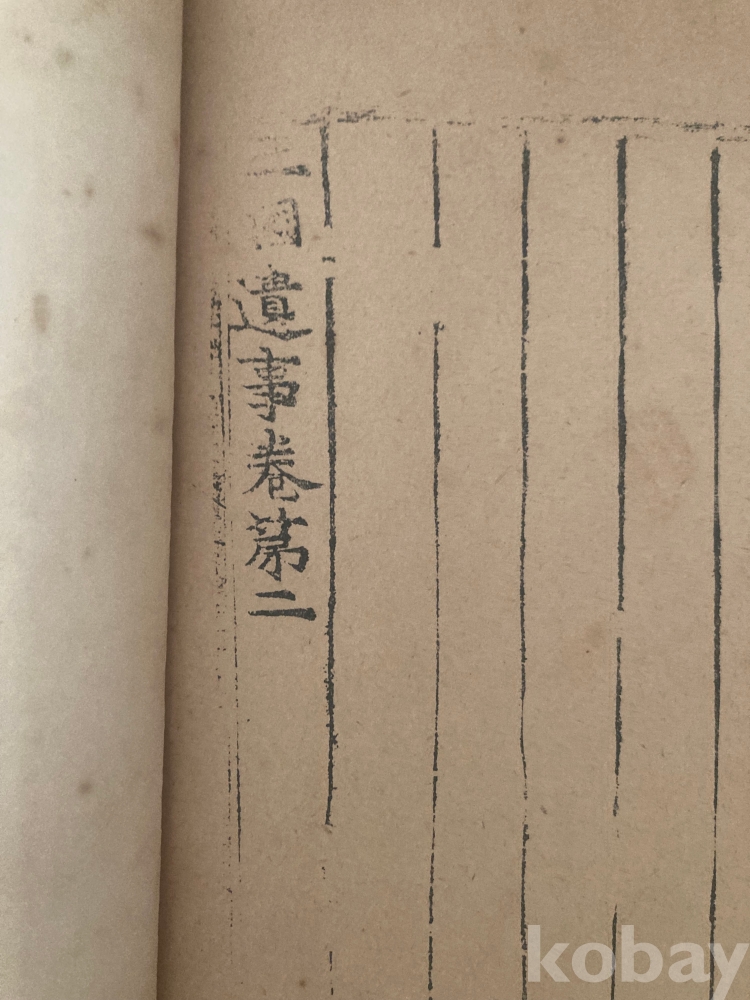 三國遺事卷第二
kobay